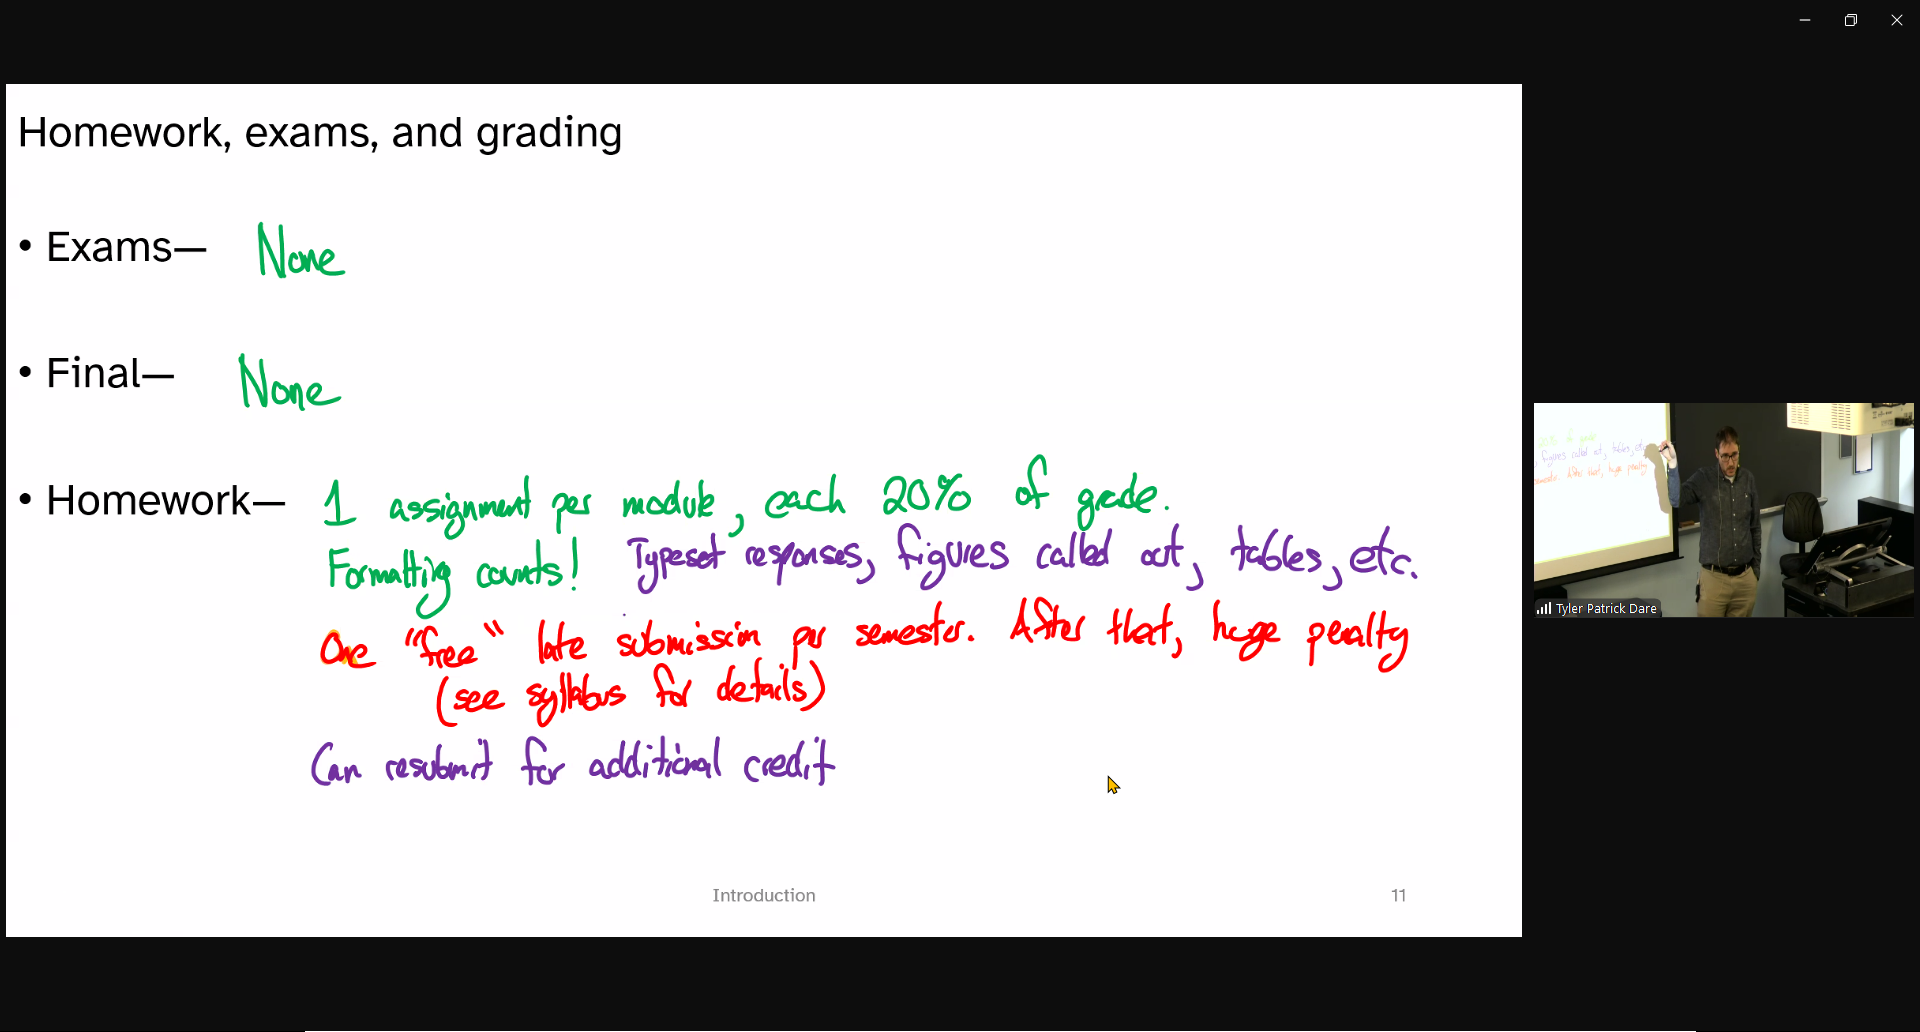 Homework, exams, and grading
• Exams— None
• Final— None
• Homework— 1 assignment per module, each 20% of grade.
Formatting counts! Typeset responses, figures called out, tables, etc.
One "free" late submission per semester. After that, huge penalty
(see syllabus for details)
Can resubmit for additional credit
Introduction
11
20% of grade
figures called out, tables, etc
semester. After that, huge penalty
Tyler Patrick Dare